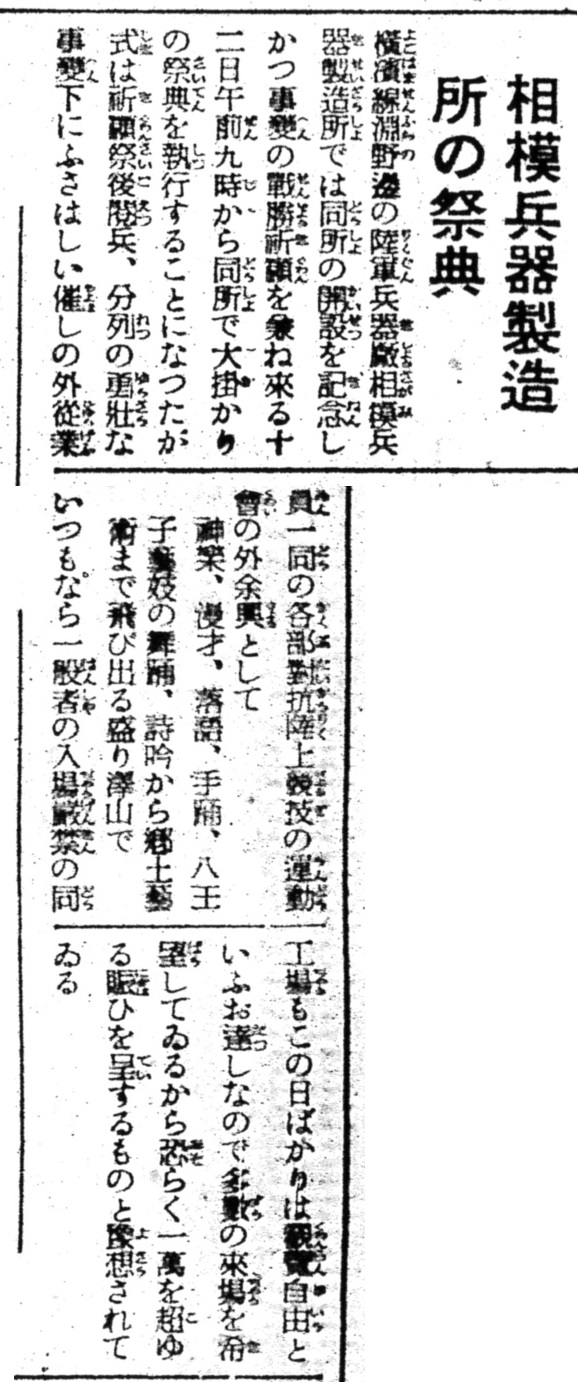 相模兵器製造
所の祭典
横濱線淵野邊の陸軍兵器廠相模兵
器製造所では同所の開設を記念し
かつ事變の戰勝祈願を兼ね來る十
二日午前九時から同所で大掛かり
の祭典を執行することになつたが
式は祈願祭後閲兵、分列の勇壯な
事變下にふさはしい催しの外從業
員一同の各部對抗陸上競技の運動
會の外余興として
神樂、漫才、落語、手踊、八王
子藝妓の舞踊、詩吟から郷土藝
術まで飛び出る盛り澤山で
いつもなら一般者の入場嚴禁の同
工場もこの日ばかりは觀覽自由と
いふお達しなので多數の來場を希
望してゐるから恐らく一萬を超ゆ
る賑ひを呈するものと豫想されて
ゐる